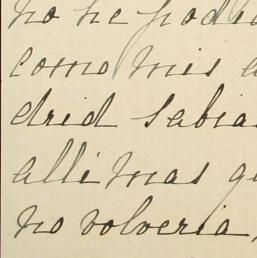 no he podid
como mis a
drid sabia
alli mas qu
no volveria,